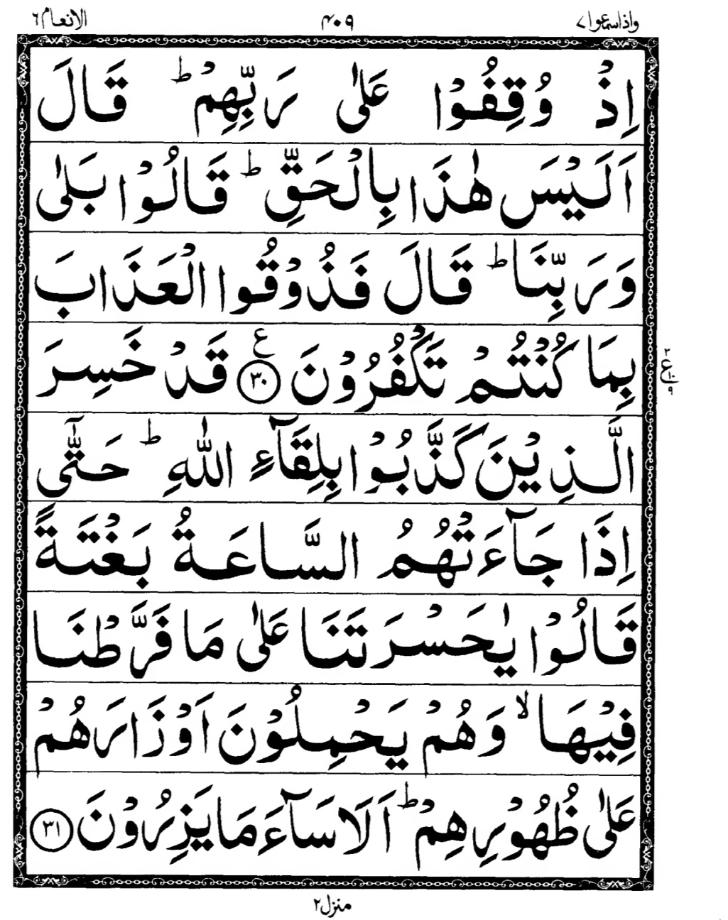 واذاسمعوا۷ ۴۰۹ الانعام۶
اِذْ وُقِفُوْا عَلٰى رَبِّهِمْ ؕ قَالَ
اَلَيْسَ هٰذَا بِالْحَقِّ ؕ قَالُوْا بَلٰى
وَرَبِّنَا ؕ قَالَ فَذُوْقُوا الْعَذَابَ
بِمَا كُنْتُمْ تَكْفُرُوْنَ ۝۳۰ ع قَدْ خَسِرَ
۲ ع ۱۰ ۹
الَّذِيْنَ كَذَّبُوْا بِلِقَآءِ اللّٰهِ ؕ حَتّٰۤى
اِذَا جَآءَتْهُمُ السَّاعَةُ بَغْتَةً
قَالُوْا يٰحَسْرَتَنَا عَلٰى مَا فَرَّطْنَا
فِيْهَا ۙ وَهُمْ يَحْمِلُوْنَ اَوْزَارَهُمْ
عَلٰى ظُهُوْرِهِمْ ؕ اَلَا سَآءَ مَا يَزِرُوْنَ ۝۳۱
منزل۲